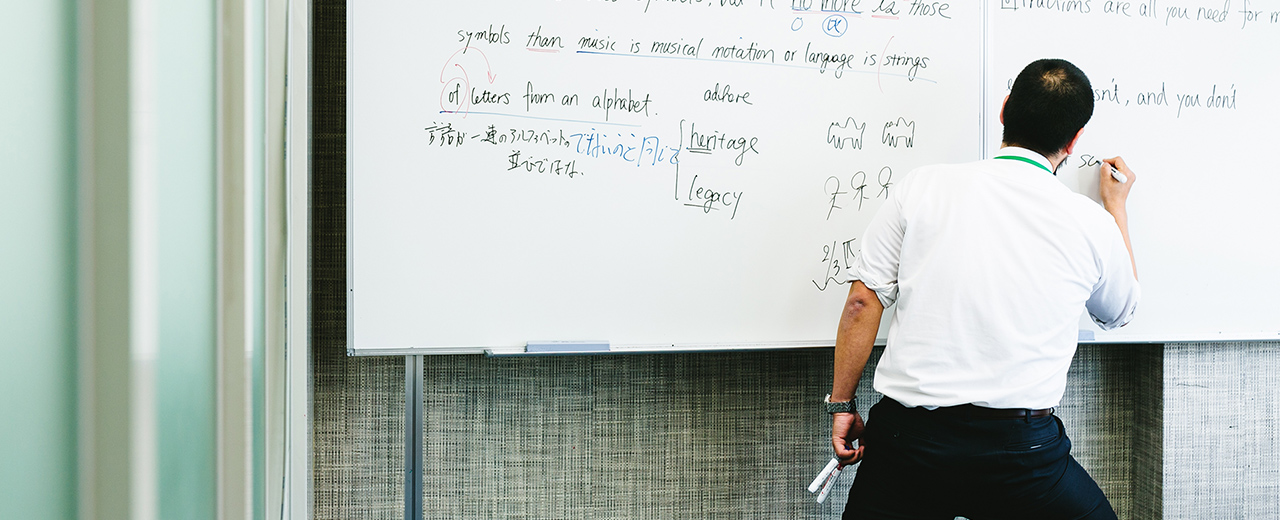 no more is those
symbols than music is musical notation or language is strings
of letters from an alphabet.
adhore
言語が一連のアルファベットの
でないのと同じ
並びではな.
heritage
legacy
2/3
are all you need for
, and you don't